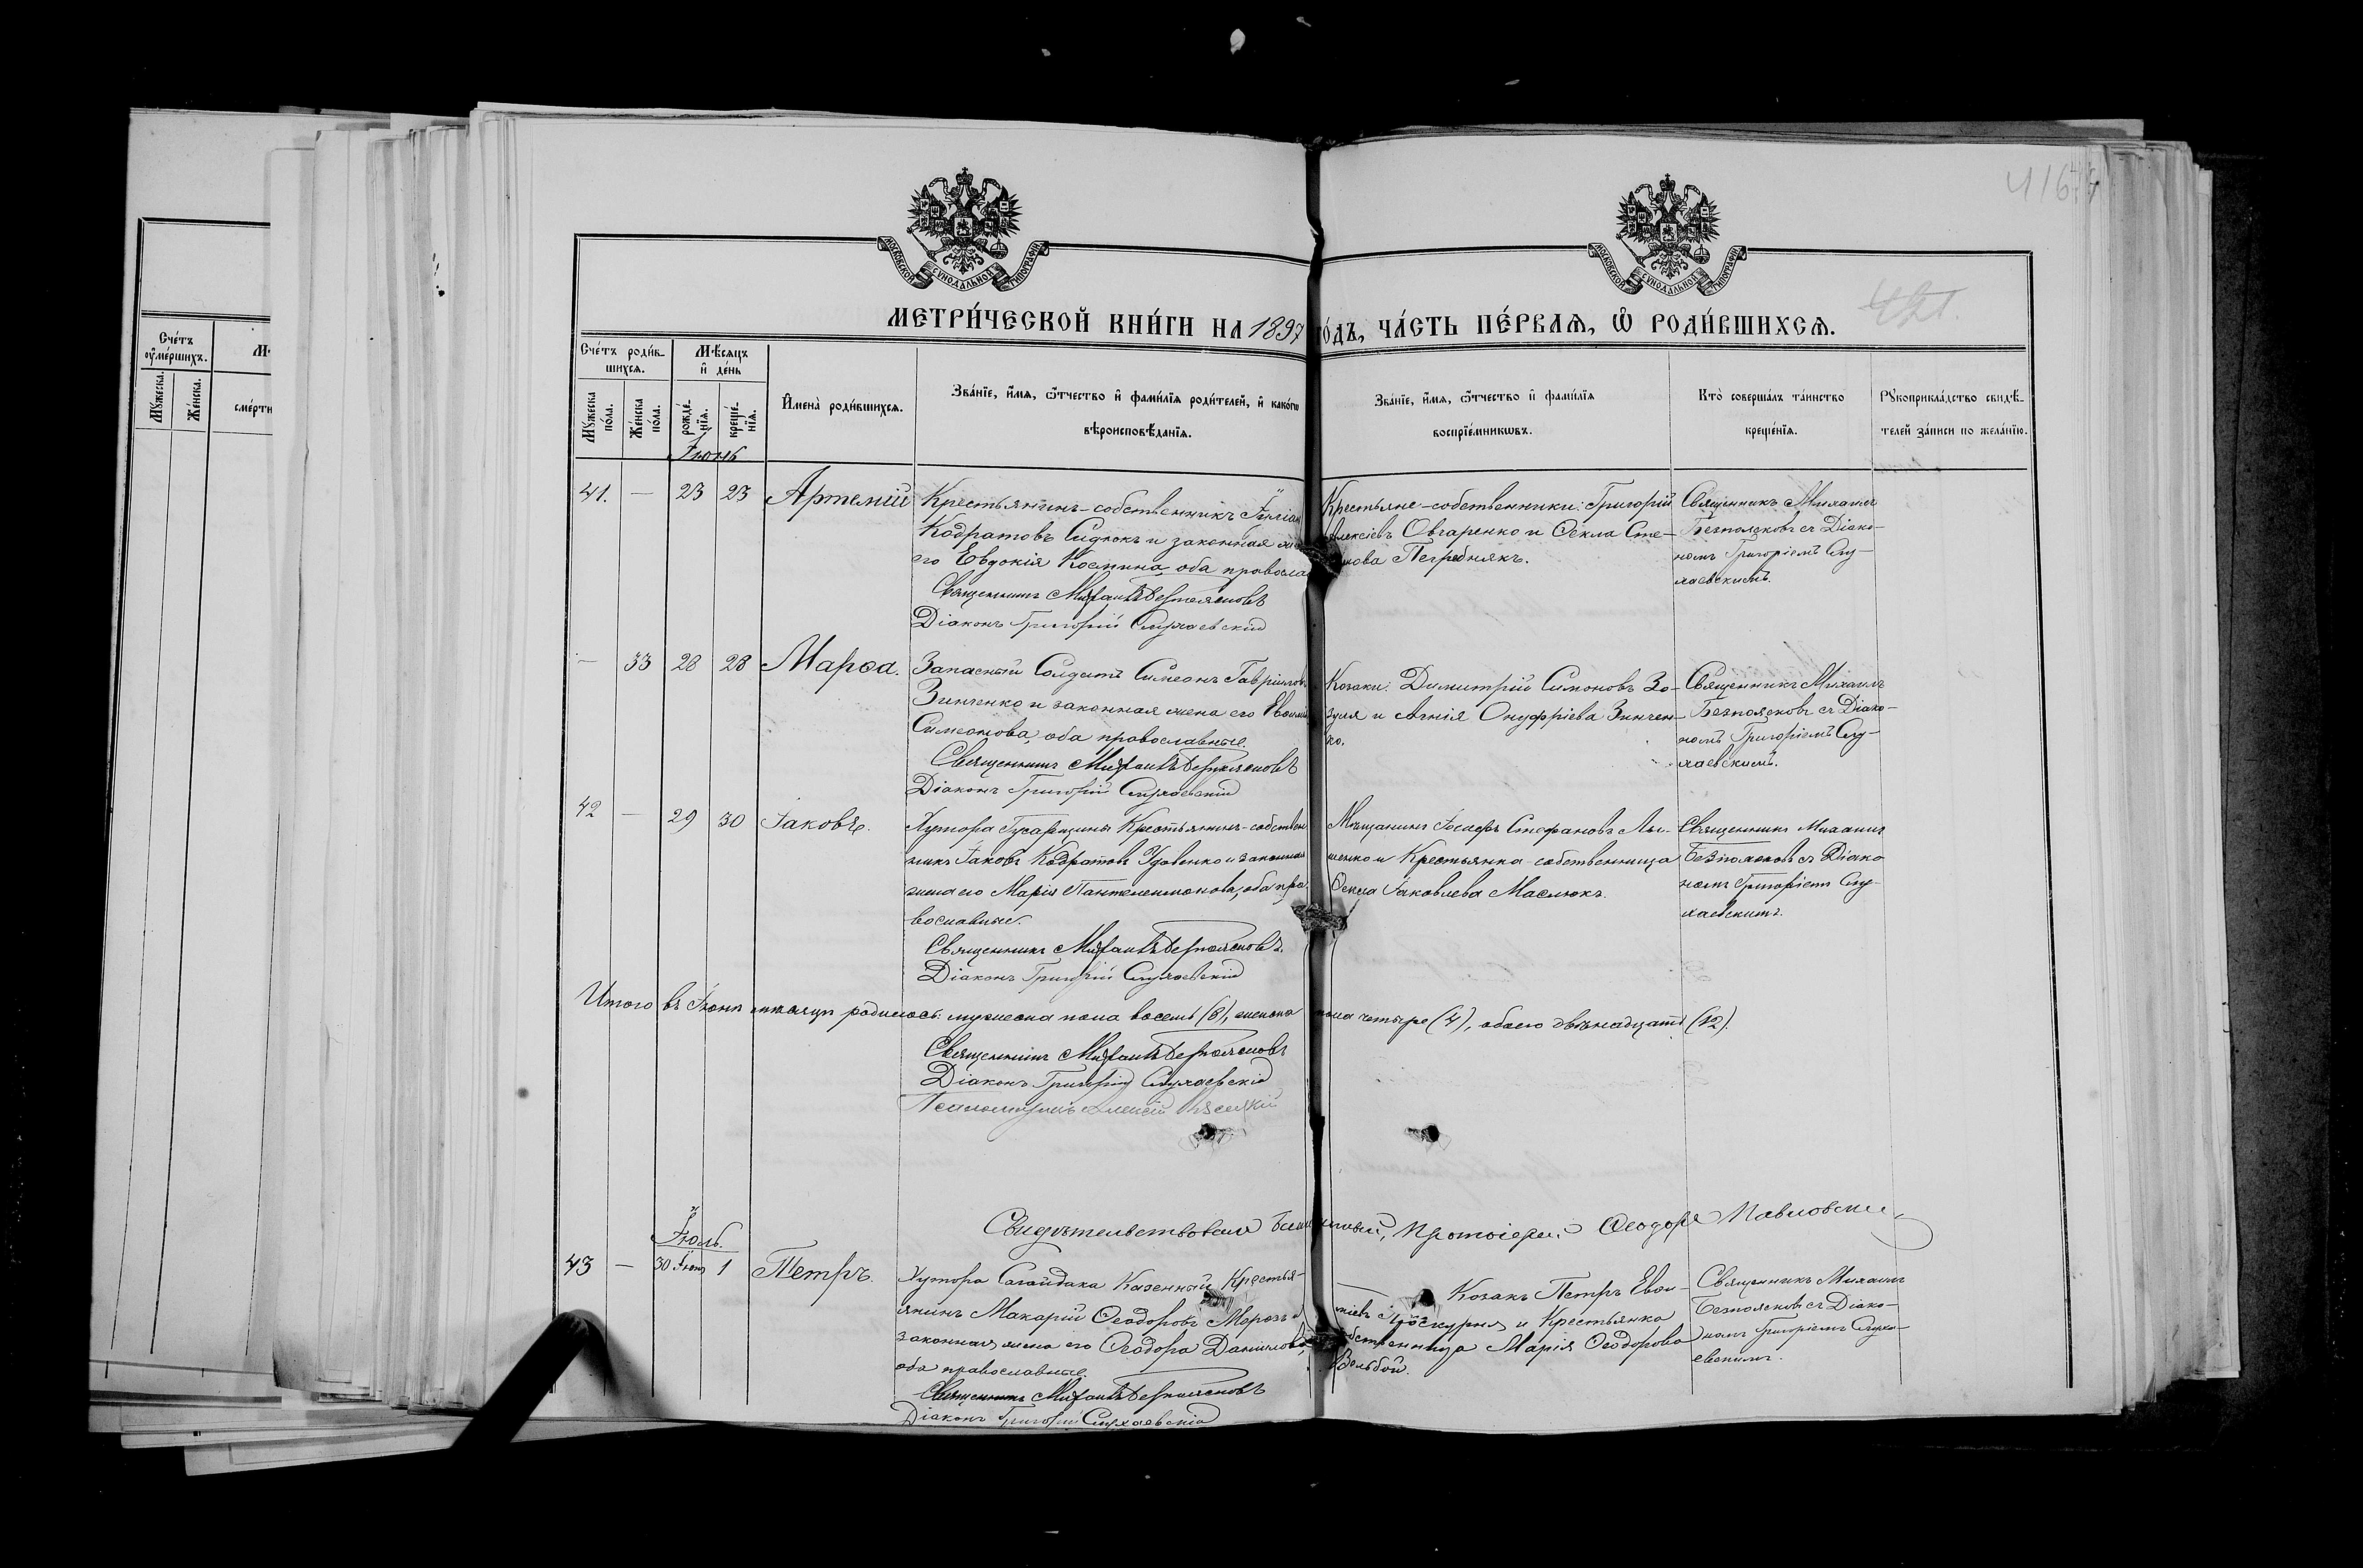 416
МОСКОВСКОЙ СѴНОДАЛЬНОЙ ТИПОГРАФІИ
МОСКОВСКОЙ СѴНОДАЛЬНОЙ ТИПОГРАФІИ
421.
МЕТРИ́ЧЕСКОЙ КНИ́ГИ НА 1897 ГО́ДЪ, ЧА́СТЬ ПЕ́РВАѦ, Ѽ РОДИ́ВШИХСѦ.
Сче́тъ оу҆ме́ршихъ.
Мꙋ́жеска.
Же́нска.
сме́рти
Сче́тъ роди́вшихсѧ.
Мꙋ́жеска по́ла.
Же́нска по́ла.
Мѣ́сѧцъ и҆ де́нь
рожде́нїѧ.
креще́нїѧ.
И҆мена̀ роди́вшихсѧ.
Зва́нїе, и҆́мѧ, ѻ҆́тчество и҆ фами́лїѧ роди́телей, и҆ како́гѡ
вѣроисповѣ́данїѧ.
Зва́нїе, и҆́мѧ, ѻ҆́тчество и҆ фами́лїѧ
воспрїе́мникѡвъ.
Кто̀ соверша́лъ та́инство
креще́нїѧ.
Рꙋкоприкла́дство свидѣ́-
телей за́писи по жела́нїю.
Іюнь
41. — 23 23 Артемій
Крестьянинъ-собственникъ Іуліан
Кодратовъ Сиднокъ и законная же
его Евдокія Космина, оба правосла
Священникъ Михаилъ Безпоясковъ
Діаконъ Григорій Слухаевскій
Крестьяне-собственники: Григорій
Алексіевъ Овчаренко и Ѳекла Сте-
нова Погребнякъ.
Священникъ Михаилъ
Безпоясковъ съ Діако-
номъ Григоріемъ Слу-
хаевскимъ.
— 33 28 28 Марѳа.
Запасный Солдатъ Симеонъ Гавріиловъ
Зинченко и законная жена его Евѳимія
Симеонова, оба православные.
Священникъ Михаилъ Безпоясковъ
Діаконъ Григорій Слухаевскій
Козаки: Димитрій Симоновъ Зо-
зуля и Агнія Онуфріева Зинчен-
ко.
Священникъ Михаилъ
Безпоясковъ съ Діако-
номъ Григоріемъ Слу-
хаевскимъ.
42 — 29 30 Іаковъ.
Хутора Гусарщины Крестьянинъ-собствен
никъ Іаковъ Кодратовъ Удовенко и законная
жена его Марія Пантелеимонова, оба пра
вославные.
Священникъ Михаилъ Безпоясковъ.
Діаконъ Григорій Слухаевскій
Мѣщанинъ Іосифъ Стефановъ Ля-
шенко и Крестьянка-собственница
Ѳекла Іаковлева Маслюкъ.
Священникъ Михаилъ
Безпоясковъ съ Діако
номъ Григоріемъ Слу-
хаевскимъ.
Итого въ Іюнѣ мѣсяцѣ родилось: мужеска пола восемь (8), женска пола четыре (4), обоего двѣнадцать (12).
Священникъ Михаилъ Безпоясковъ
Діаконъ Григорій Слухаевскій
Псаломщикъ Алексій
Свидѣтельствовалъ Благочинный, Протоіерей Ѳеодоръ Павловскій
Іюль.
43 — 30 Іюня 1 Петръ.
Хутора Сагайдака Казенный Крестья-
янинъ Макарій Ѳеодоровъ Морозъ и
законная жена его Ѳеодора Данилова,
оба православные.
Священникъ Михаилъ Безпоясковъ
Діаконъ Григорій Слухаевскій
Козакъ Петръ Евѳи-
міевъ Проскурня и Крестьянка
собственница Марія Ѳеодорова
Вельбой.
Священникъ Михаилъ
Безпоясковъ съ Діако-
номъ Григоріемъ Слуха-
евскимъ.